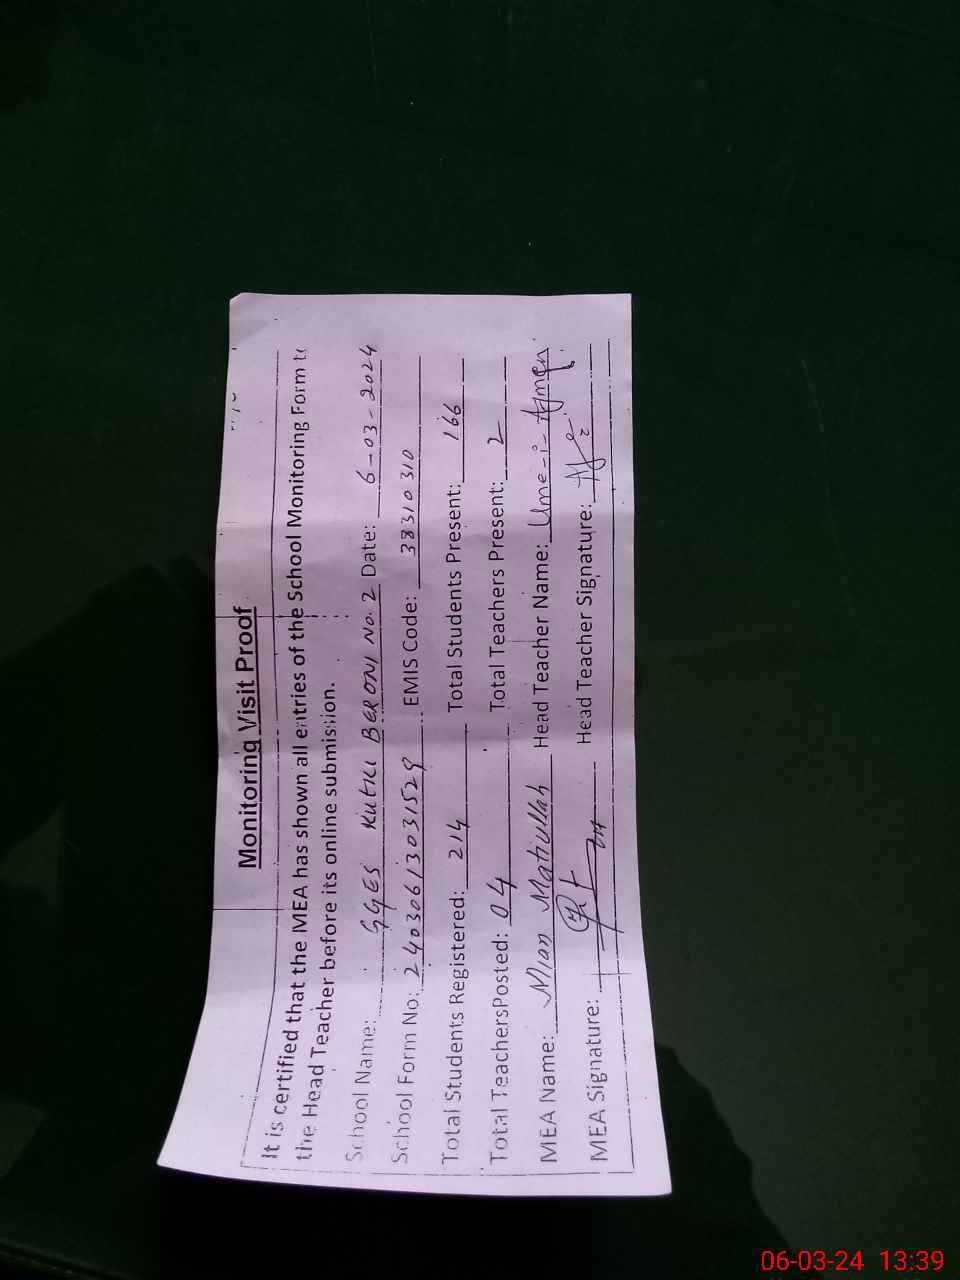 Monitoring Visit Proof
It is certified that the MEA has shown all entries of the School Monitoring Form to
the Head Teacher before its online submission.
School Name: GGES KUTKI BERONI No. 2 Date: 6-03-2024
School Form No: 24030613031529 EMIS Code: 38310310
Total Students Registered: 214 Total Students Present: 166
Total TeachersPosted: 04 Total Teachers Present: 2
MEA Name: Mian Matiullah Head Teacher Name: Ume-i-Aymen
MEA Signature: Head Teacher Signature:
06-03-24 13:39